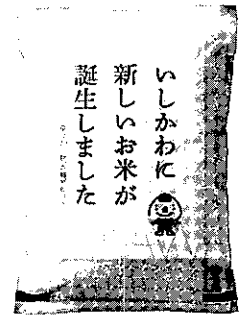 いしかわに
新しいお米が
誕生しました